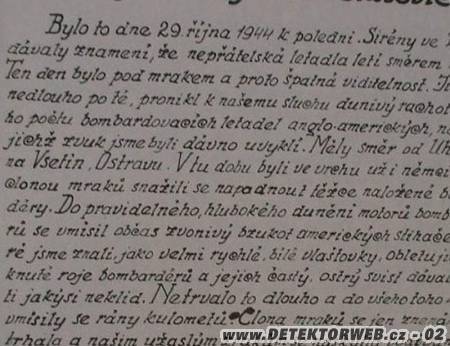 Bylo to dne 29. října 1944 k poledni. Sirény ve
dávaly znamení, že nepřátelská letadla letí směrem
Ten den bylo pod mrakem a proto špatná viditelnost.
nedlouho po té, pronikl k našemu sluchu dunivý rachot
ho počtu bombardovacích letadel anglo-amerických, n
jichž zvuk jsme byli dávno uvyklí. Měly směr od Uh
na Vsetín, Ostravu. V tu dobu byli ve vrchu už i němci
clonou mraků snažili se napadnout těžce naložené b
déry. Do pravidelného, hlubokého dunění motorů bomb
rů se vmísil občas zvonivý bzukot amerických stíhače
ré jsme znali, jako velmi rychlé, bílé vlaštovky, obletuj
knuté roje bombardérů a jejich častý, ostrý svist dáva
li jakýsi neklid. Netrvalo to dlouho a do všeho toho
vmísily se rány kulometů. Clona mraků se jen
trhala a našim užaslým
www.DETEKTORWEB.cz - 02